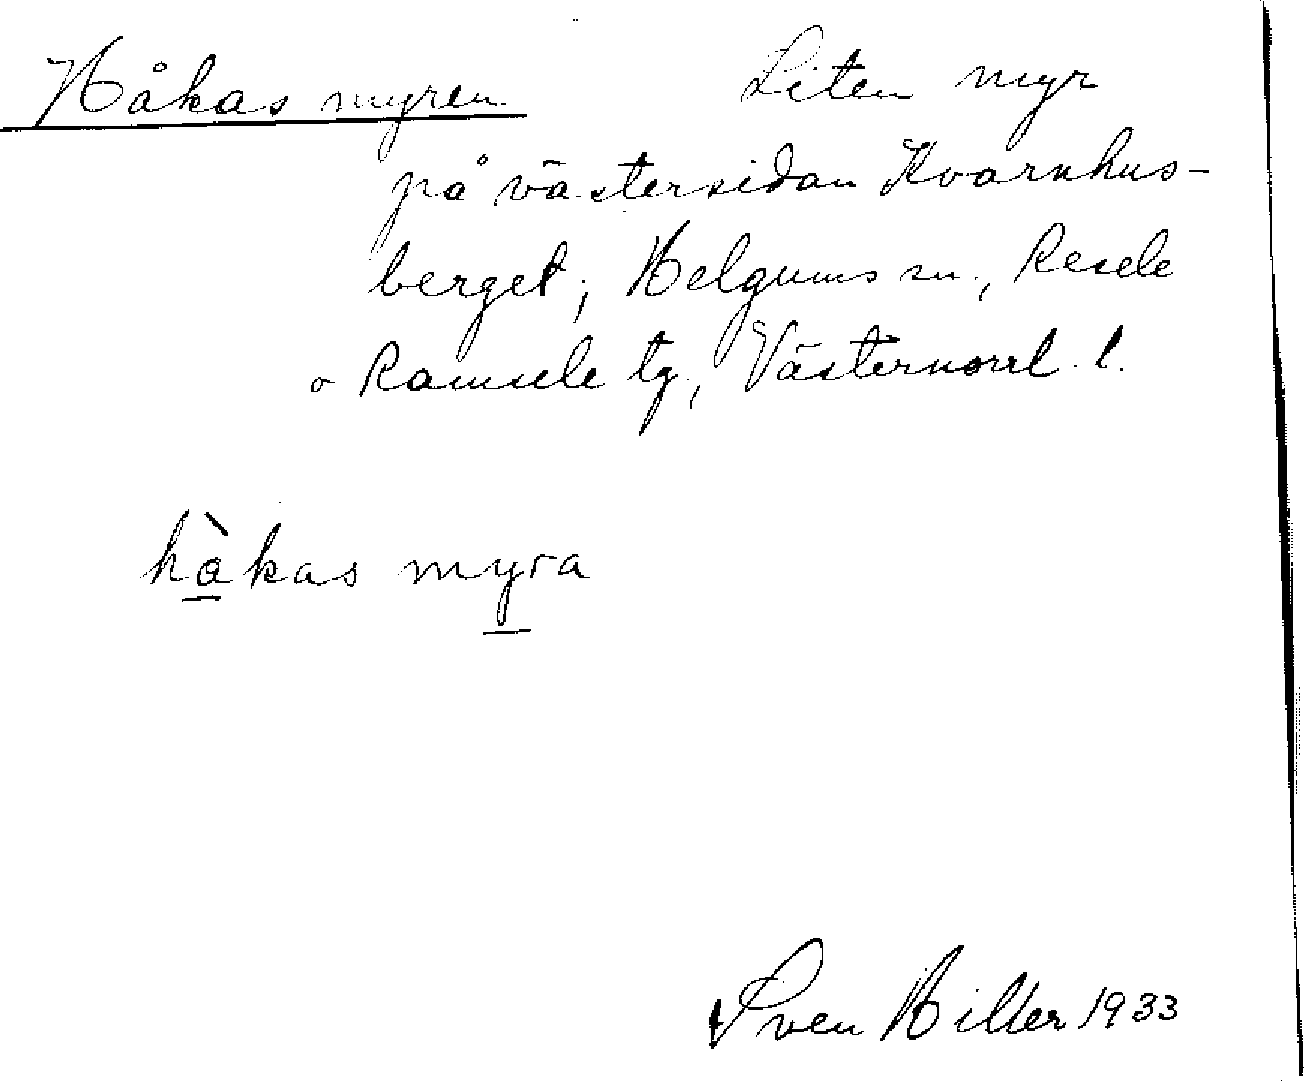 Håkas myren Liten myr
på västersidan Kvarnhus-
berget, Helgums sn., Resele
o Ramsele tg., Västernorrl. l.
hå̀kas myra
Sven Hiller 1933